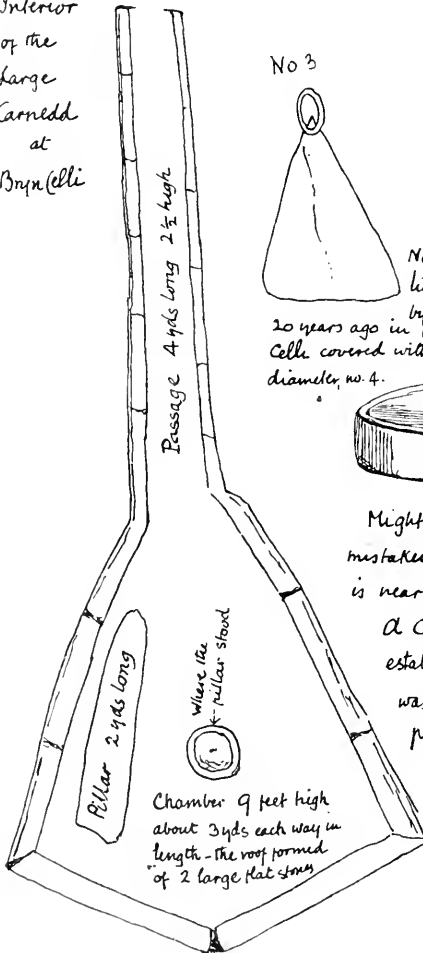 Interior
of the
Large
Carnedd
at
Bryn Celli
No 3
Passage 4 yds long 2½ high
20 years ago in
Celli covered with
diameter, no. 4.
Might
mistake
is near
a C
estab
was
p
Where the
pillar stood
Pillar 2 yds long
Chamber 9 feet high
about 3 yds each way in
length - the roof formed
of 2 large flat stones